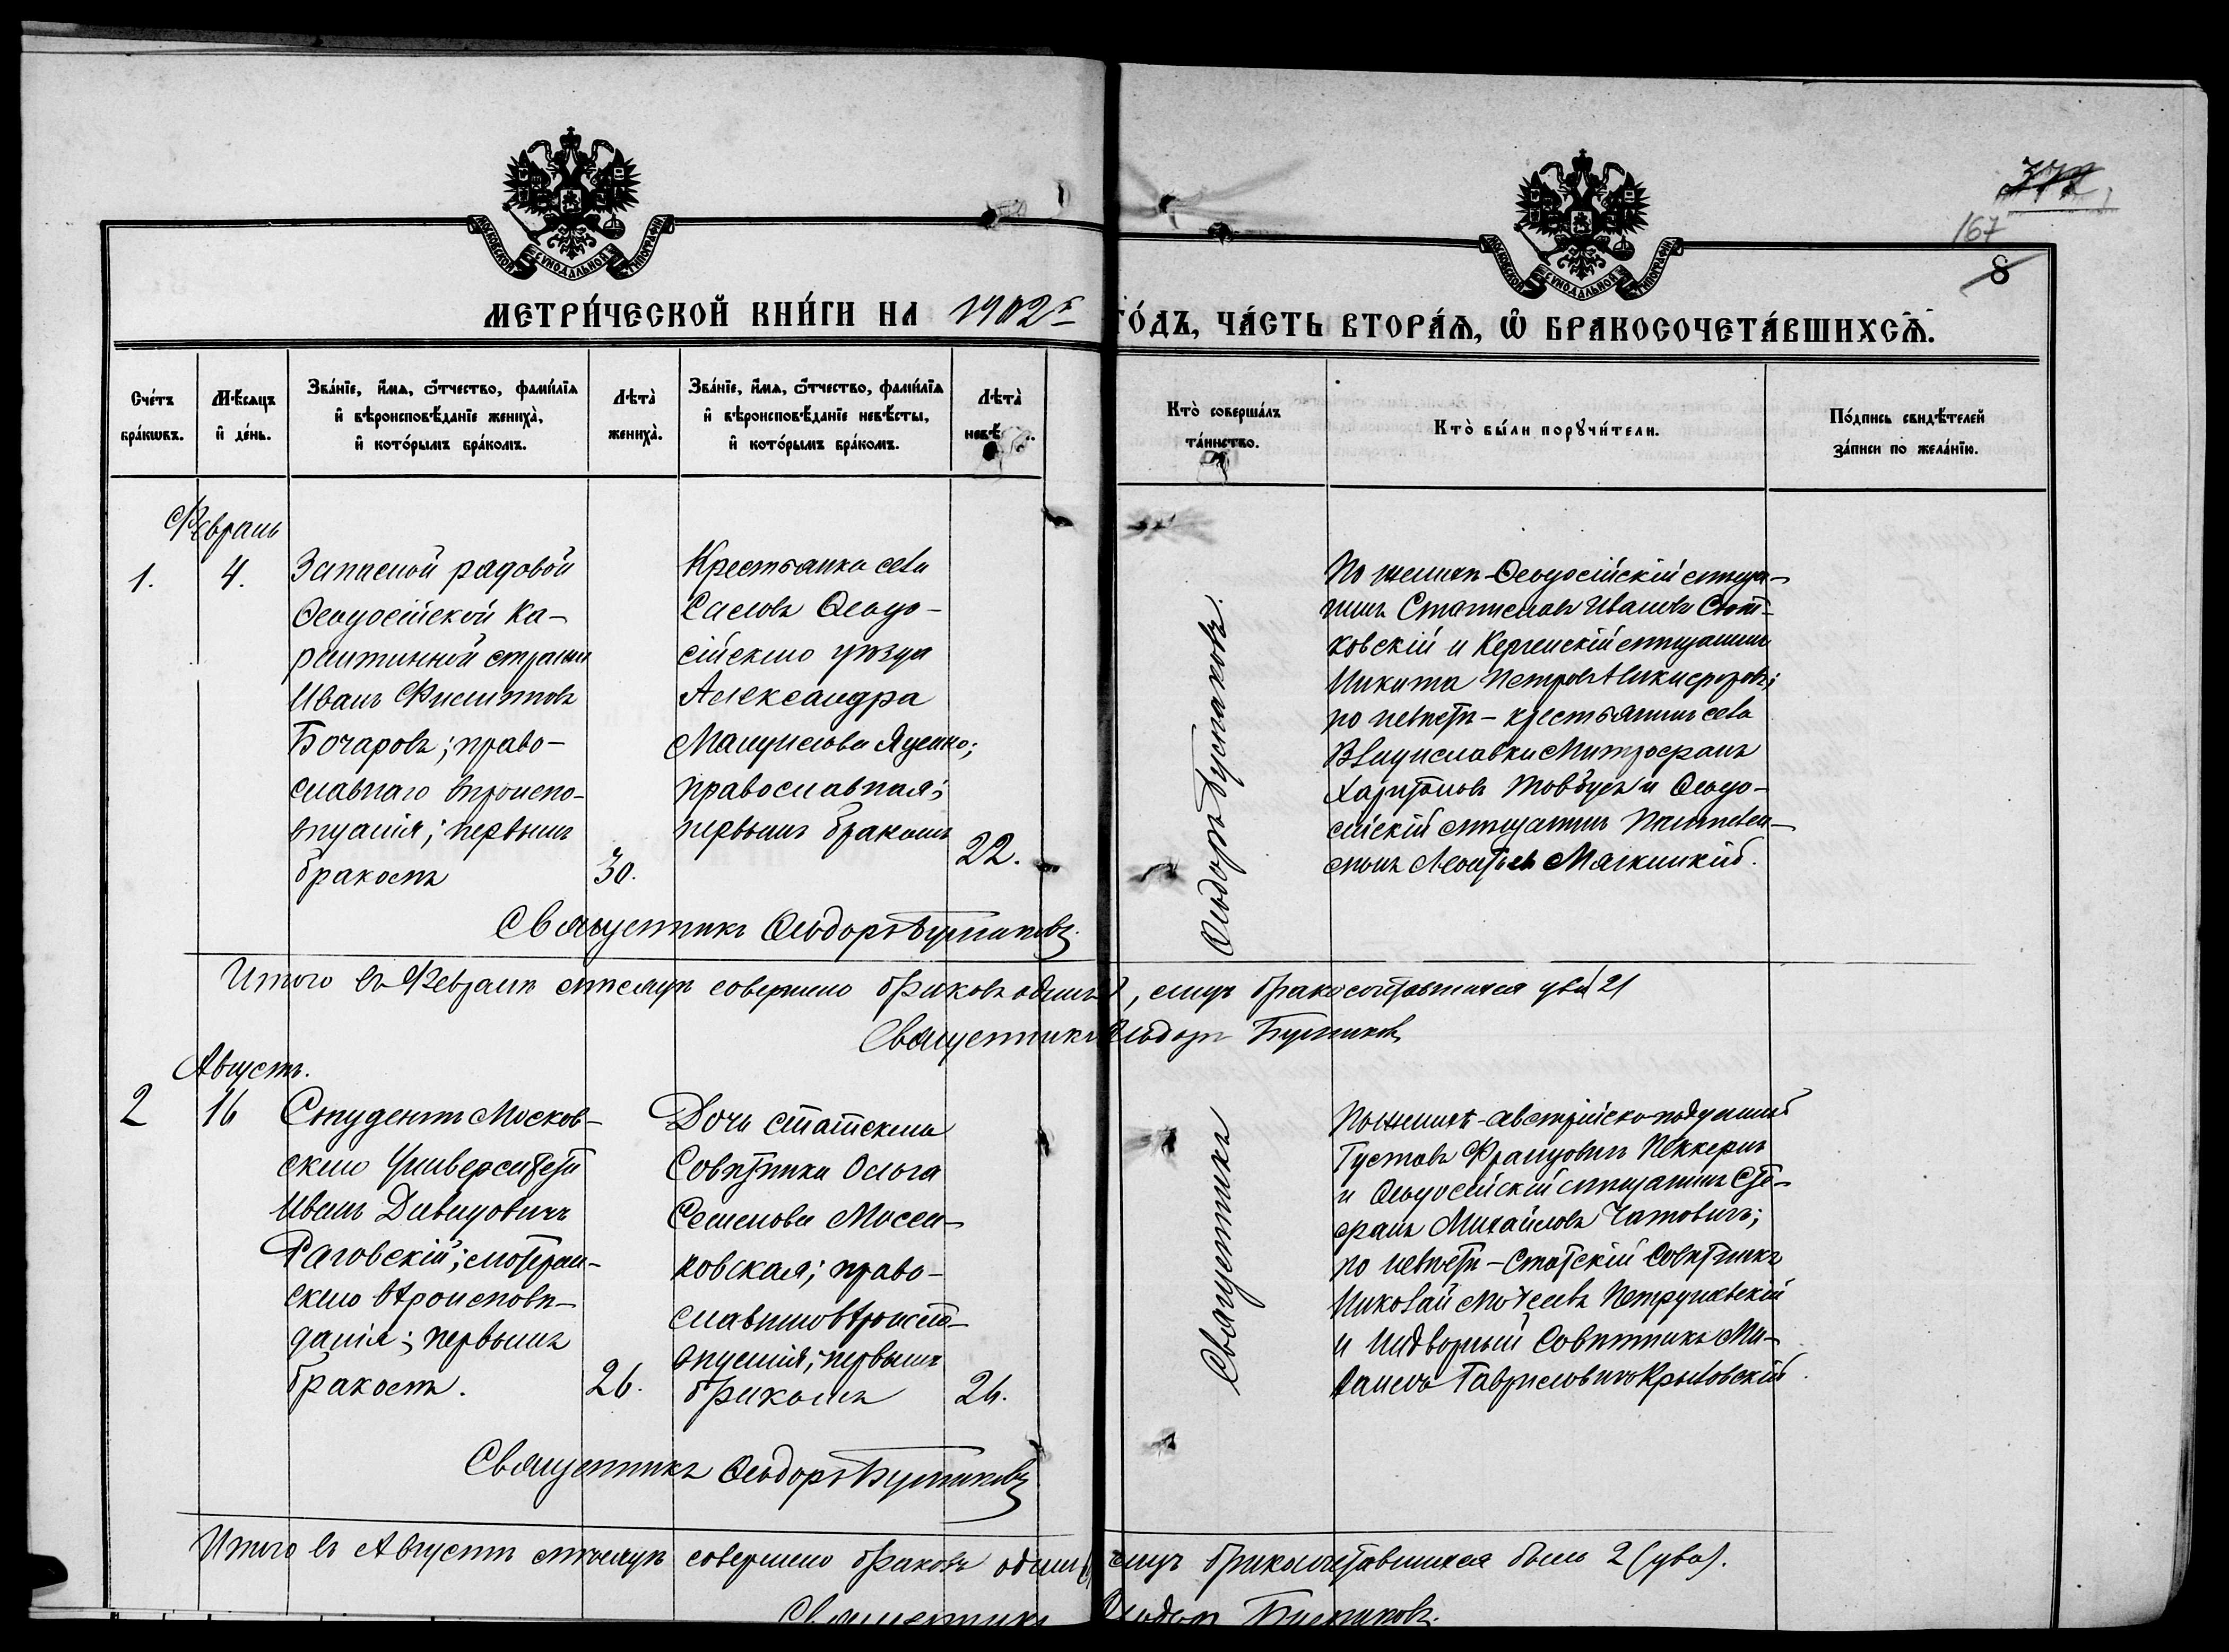 МОСКОВСКОЙ СѴНОДАЛЬНОЙ ТИПОГРАФІИ
МОСКОВСКОЙ СѴНОДАЛЬНОЙ ТИПОГРАФІИ
372
167
8
МЕТРИ́ЧЕСКОЙ КНИ́ГИ НА 1902 г ГО́ДЪ, ЧА́СТЬ ВТОРА́Ѧ, Ѡ҆ БРАКОСОЧЕТА́ВШИХСѦ.
Сче́тъ бра́кѡвъ.
Мѣ́сѧцъ и҆ де́нь.
Зва́нїе, и҆́мѧ, ѻ҆́тчество, фами́лїѧ
и҆ вѣроисповѣ́данїе жениха̀,
и҆ кото́рымъ бра́комъ.
Лѣта̀ жениха̀.
Зва́нїе, и҆́мѧ, ѻ҆́тчество, фами́лїѧ
и҆ вѣроисповѣ́данїе невѣ́сты,
и҆ кото́рымъ бра́комъ.
Лѣта̀
невѣ
Кто̀ соверша́лъ
та́инство.
Кто̀ бы́ли порꙋчи́тели.
По́дпись свидѣ́телей
за́писи по жела́нїю.
Февраль
1.
4.
Запасной рядовой
Ѳеодосійской Ка-
рантинной стражи
Иванъ Филиповъ
Бочаровъ; право-
славнаго вѣроиспо-
вѣданія; первымъ
бракомъ
30.
Крестьянка села
Ѳеодо-
сійскаго уѣзда
Александра
Мануилова Яценко;
православная;
первымъ бракомъ
22.
Ѳеодоръ Бустаковъ.
По женихѣ – Ѳеодосійскій мѣща-
нинъ Станиславъ Ивановъ
ковскій и Керченскій мѣщанинъ
Никита Петровъ Никифоровъ;
по невѣстѣ – крестьянинъ села
Владиславки Митрофанъ
Харитоновъ и Ѳеодо-
сійскій мѣщанинъ Пантелеи-
монъ Леонтьевъ
Священникъ Ѳеодоръ Бустаковъ.
Итого въ Февралѣ мѣсяцѣ совершено браковъ одинъ 1, лицъ бракосочетавшихся два 2
Священникъ Ѳеодоръ Бустаковъ
Августъ.
2
16
Студентъ Москов-
скаго Университета
Иванъ Давидовичъ
Раговскій; лютеран-
скаго вѣроисповѣ-
данія; первымъ
бракомъ.
26.
Дочь статскаго
Совѣтника Ольга
Семенова Мосен-
ковская; право-
славнаго вѣроиспо-
вѣданія; первымъ
бракомъ
24.
Священникъ
По женихѣ – австрійско-подданный
Густавъ Францовичъ Пеккеръ
и Ѳеодосійскій мѣщанинъ Сте-
фанъ Михайловъ Чатовичъ;
по невѣстѣ – Статскій Совѣтникъ
Николай
и Надворный Совѣтникъ Ми-
хаилъ Гавриловичъ Крыловскій.
Священникъ Ѳеодоръ Бустаковъ
Итого въ Августѣ мѣсяцѣ совершено браковъ одинъ лицъ бракосочетавшихся было 2 (два).
Священникъ Ѳеодоръ Бустаковъ.